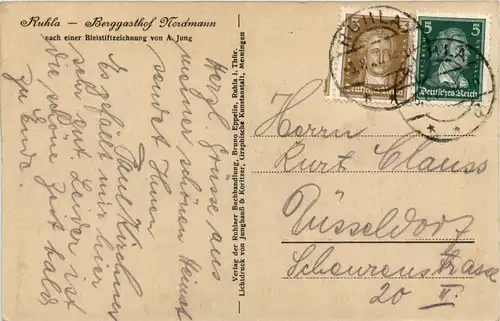 Ruhla – Berggasthof Nordmann
nach einer Bleistiftzeichnung von A. Jung
Herzl. Grüsse aus
meiner schönen
sendet Ihnen
Paul Kirchner
Es gefällt mir hier
sehr gut. Leider ist
die schöne Zeit bald
zu Ende.
Verlag der Ruhlaer Buchhandlung, Bruno Eppelin, Ruhla i. Thür.
Lichtdruck von Junghanß & Koritzer, Graphische Kunstanstalt, Meiningen
RUHLA
5 5
Deutsches Reich
Deutsches Reich
Herrn
Kurt Clauss
Düsseldorf
Scheurenstrasse
20 II.